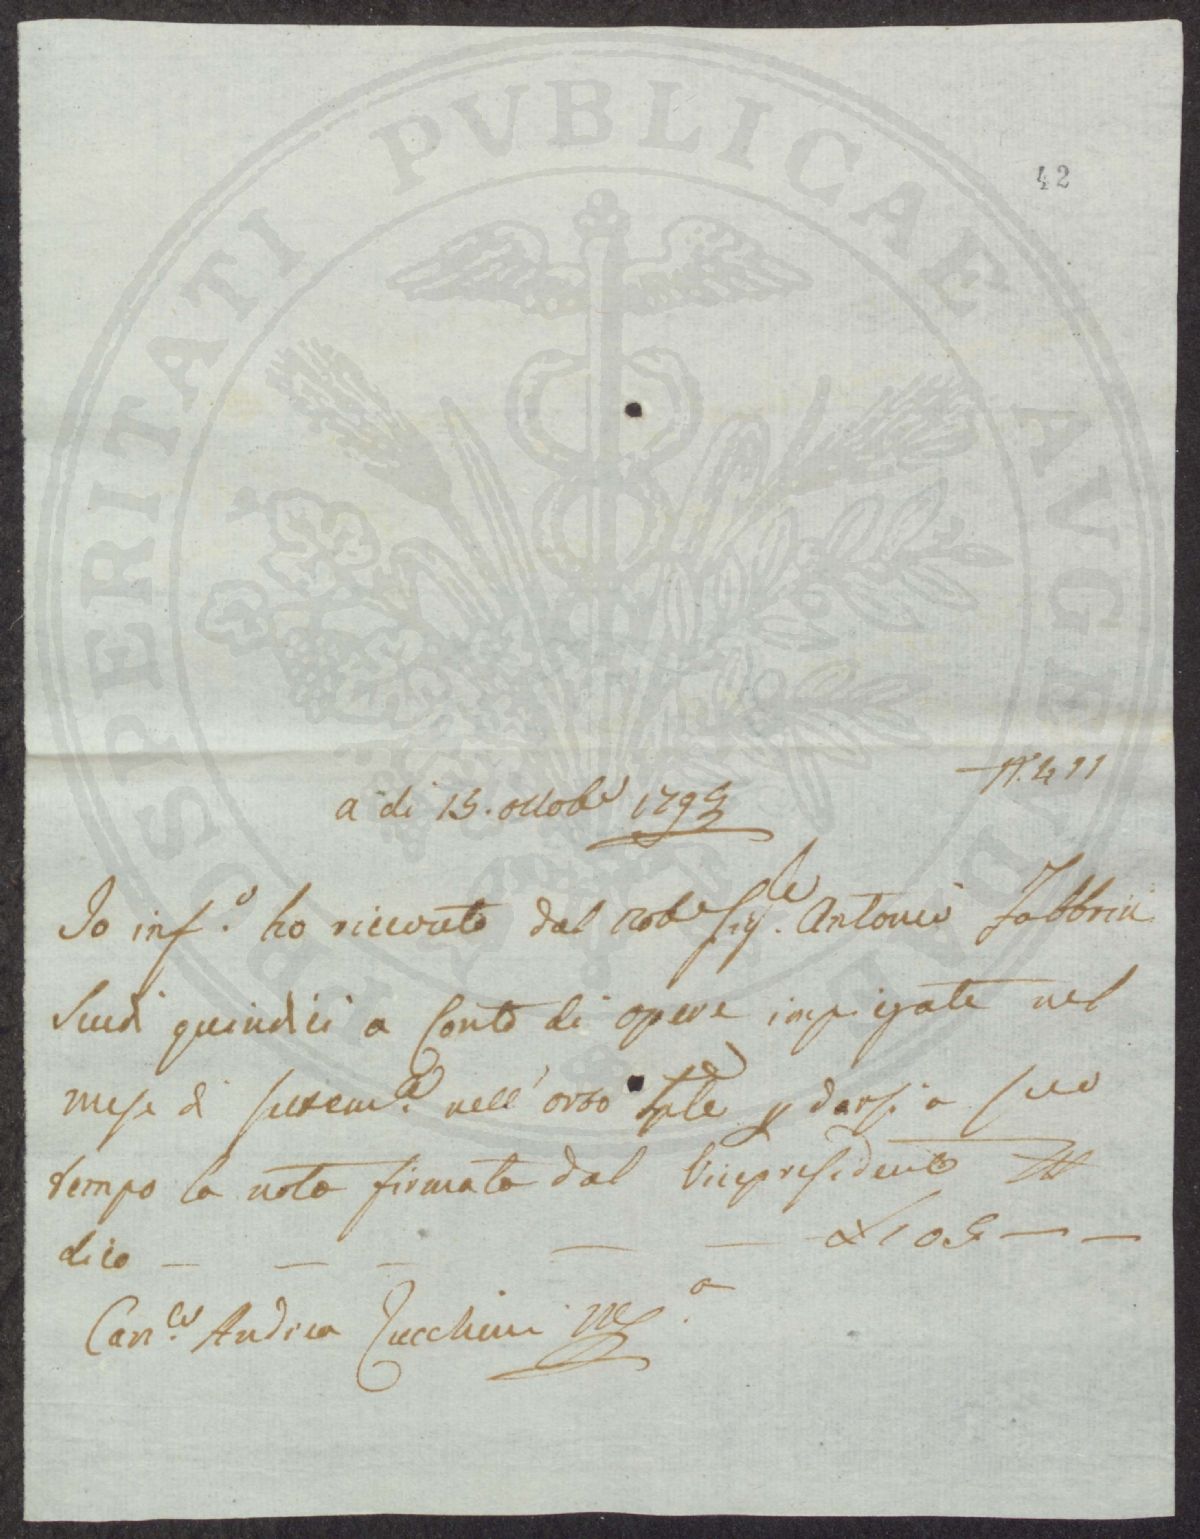 PROSPERITATI PVBLICAE AVGENDAE
42
N. 411
a di 15. ottobe 1795
Io inf.o ho riceuto dal nobe Sig.le Antonio Fabbrii
Scudi quindici a Conto di opere impiegate nel
mese di settem.e nell' orto
tempo la nota firmata dal Vicepresidente
dico — — — — — 105 — —
Can.co Andrea Zucchini m.o